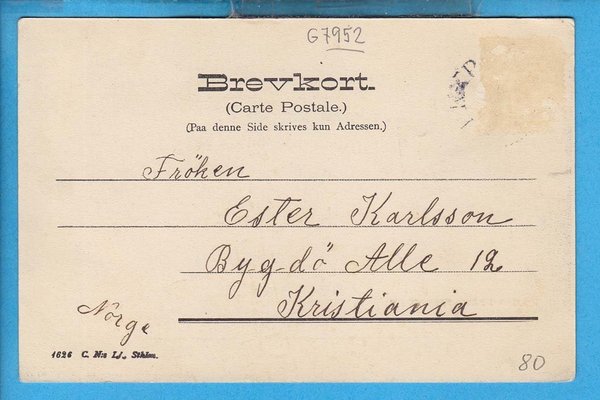 G7952
Brevkort.
(Carte Postale.)
(Paa denne Side skrives kun Adressen.)
Fröken
Ester Karlsson
Bygdö Alle 12
Kristiania
Norge
1626 C. N:s Lj., Sthlm.
80